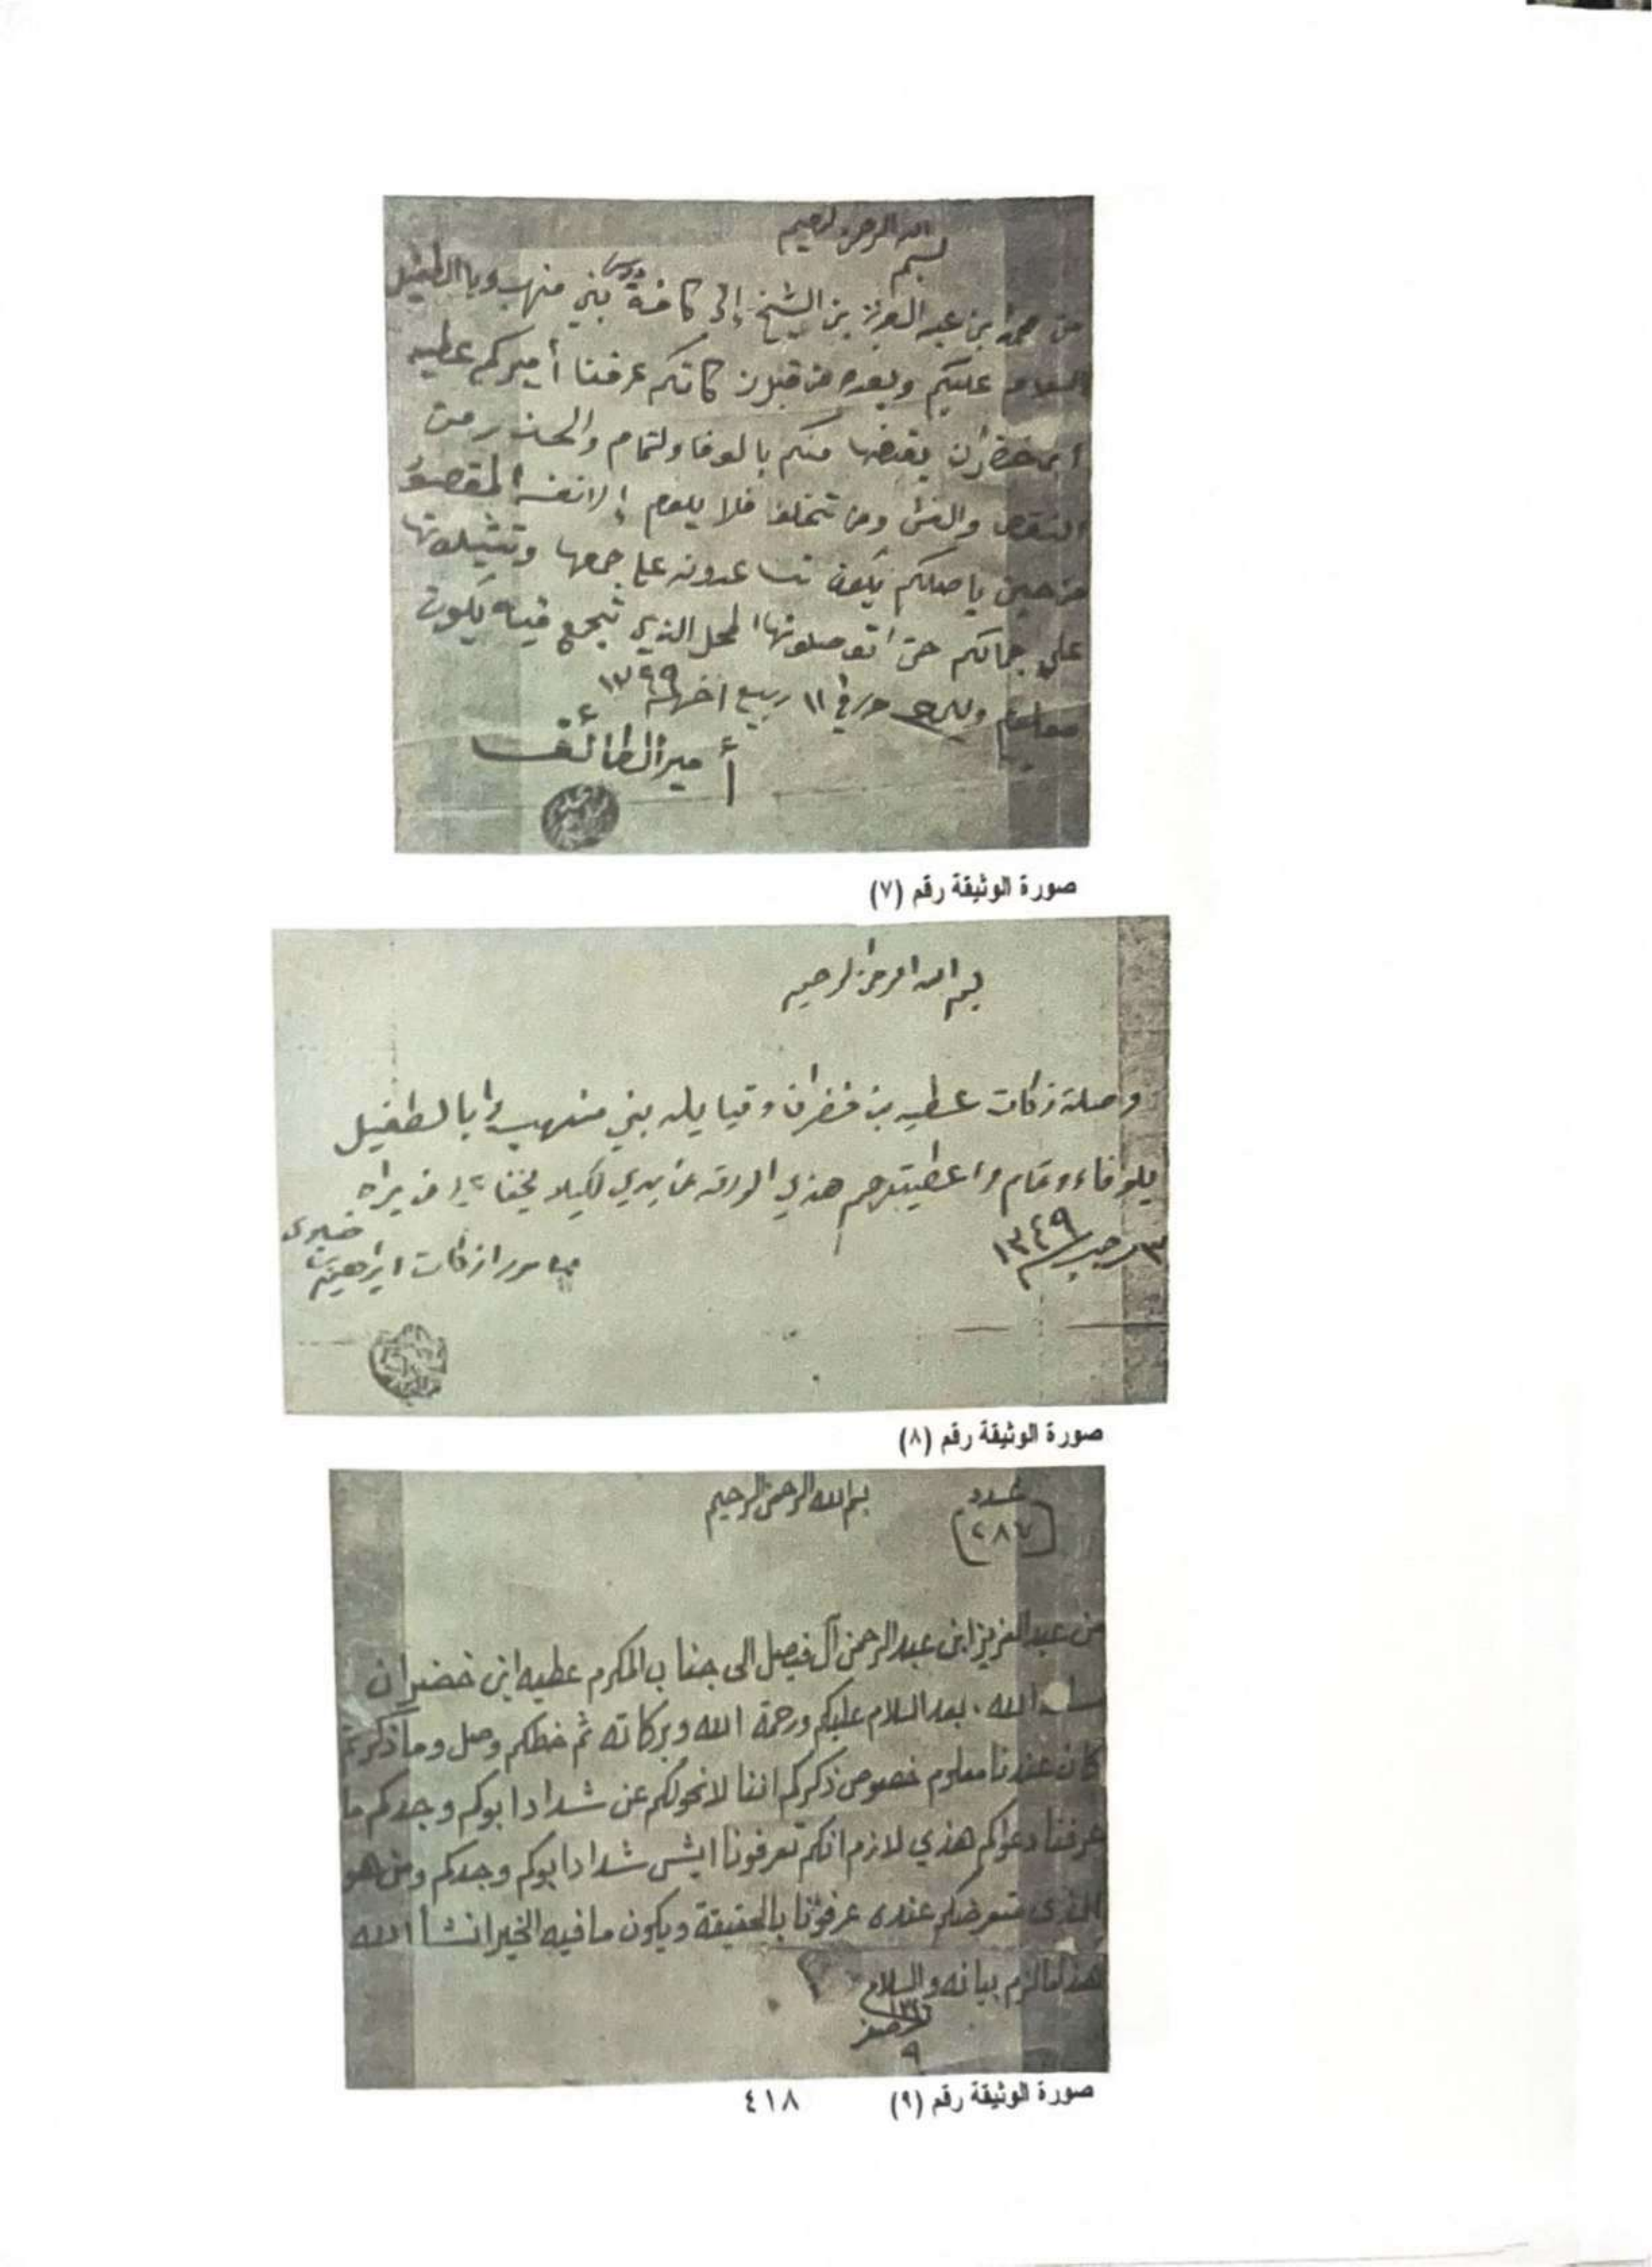 بسم الله الرحمن الرحيم
من محمد بن عبد العزيز بن الشيخ إلى كافة دوس بني منهب وبالطفيل
السلام عليكم وبعده من قبل زكاتكم عرفنا أميركم عطيه
ابن خضران يقبضها منكم بالوفا ولتمام والحذر من
النقص والغش ومن تخلف فلا يلوم إلا نفسه المقصود
من حين ياصلكم يكون تساعدونه على جمعها وتشيلونها
على جمالكم حتى اتوصلونها المحل الذي تجمع فيه يكون
معلوم والسلام حرر في ١١ ربيع اخر ١٣٤٩
أمير الطائف
صورة الوثيقة رقم (٧)
بسم الله الرحمن الرحيم
وصلة زكات عطيه بن خضران وقبايله بني منهب وابا الطفيل
بلوفاء وتمام واعطيتهم هذي الورقه من يدي لكيلا يخفا من يراه
٣ رجب ١٣٤٩
مامور ازكات ابراهيم
صورة الوثيقة رقم (٨)
عدد
(٢٨٧)
بسم الله الرحمن الرحيم
من عبد العزيز ابن عبد الرحمن آل فيصل الى جناب المكرم عطيه ابن خضران
سلمه الله . بعد السلام عليكم ورحمة الله وبركاته ثم خطكم وصل وما ذكرتم
كان عندنا معلوم خصوص ذكركم اننا لا نحولكم عن شداد ابوكم وجدكم ما
عرفنا دعواكم هذي لازم انكم تعرفونا ايش شداد ابوكم وجدكم ومن هو
الذي متعرضكم عنده عرفونا بالحقيقة ويكون ما فيه الخير انشأ الله
هذا ما لزم بيانه والسلام
٩ صفر
صورة الوثيقة رقم (٩)
٤١٨